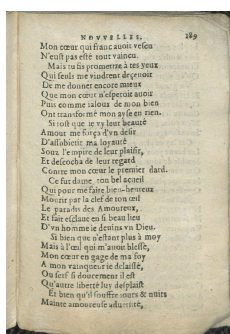 NOVVELLES. 189
Mon cœur qui franc auoit vescu
N'eust pas esté tout vaincu.
Mais tu fis promettre à tes yeux
Qui seuls me vindrent deçeuoir
De me donner encore mieux
Que mon cœur n'esperoit auoir
Puis comme ialoux de mon bien
Ont transformé mon ayse en rien.
Si tost que ie vy leur beauté
Amour me força d'vn desir
D'assubietir ma loyauté
Souz l'empire de leur plaisir,
Et descocha de leur regard
Contre mon cœur le premier dard.
Ce fut dame ton bel acueil
Qui pour me faire bien-heureux
M'ouurit par la clef de ton œil
Le paradis des Amoureux,
Et fait esclaue en si beau lieu
D'vn homme ie deuins vn Dieu.
Si bien que n'estant plus à moy
Mais à l'œil qui m'auoit blessé,
Mon cœur en gage de ma foy
A mon vainqueur i'e delaissé,
Où serf si doucement il est
Qu'autre liberté luy desplaist
Et bien qu'il souffre iours & nuits
Mainte amoureuse aduersité,